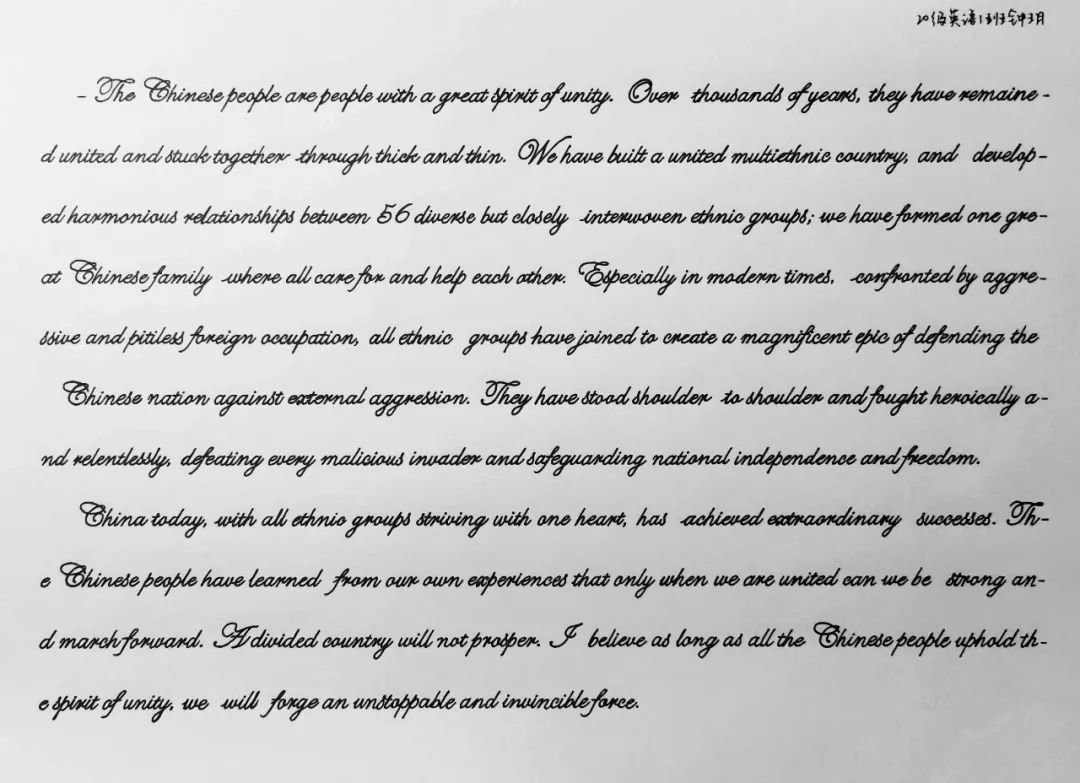 20级英语1班钟玥
- The Chinese people are people with a great spirit of unity. Over thousands of years, they have remaine-
d united and stuck together through thick and thin. We have built a united multiethnic country, and develop-
ed harmonious relationships between 56 diverse but closely interwoven ethnic groups; we have formed one gre-
at Chinese family where all care for and help each other. Especially in modern times, confronted by aggre-
ssive and pitiless foreign occupation, all ethnic groups have joined to create a magnificent epic of defending the
Chinese nation against external aggression. They have stood shoulder to shoulder and fought heroically a-
nd relentlessly, defeating every malicious invader and safeguarding national independence and freedom.
China today, with all ethnic groups striving with one heart, has achieved extraordinary successes. Th-
e Chinese people have learned from our own experiences that only when we are united can we be strong an-
d march forward. A divided country will not prosper. I believe as long as all the Chinese people uphold th-
e spirit of unity, we will forge an unstoppable and invincible force.